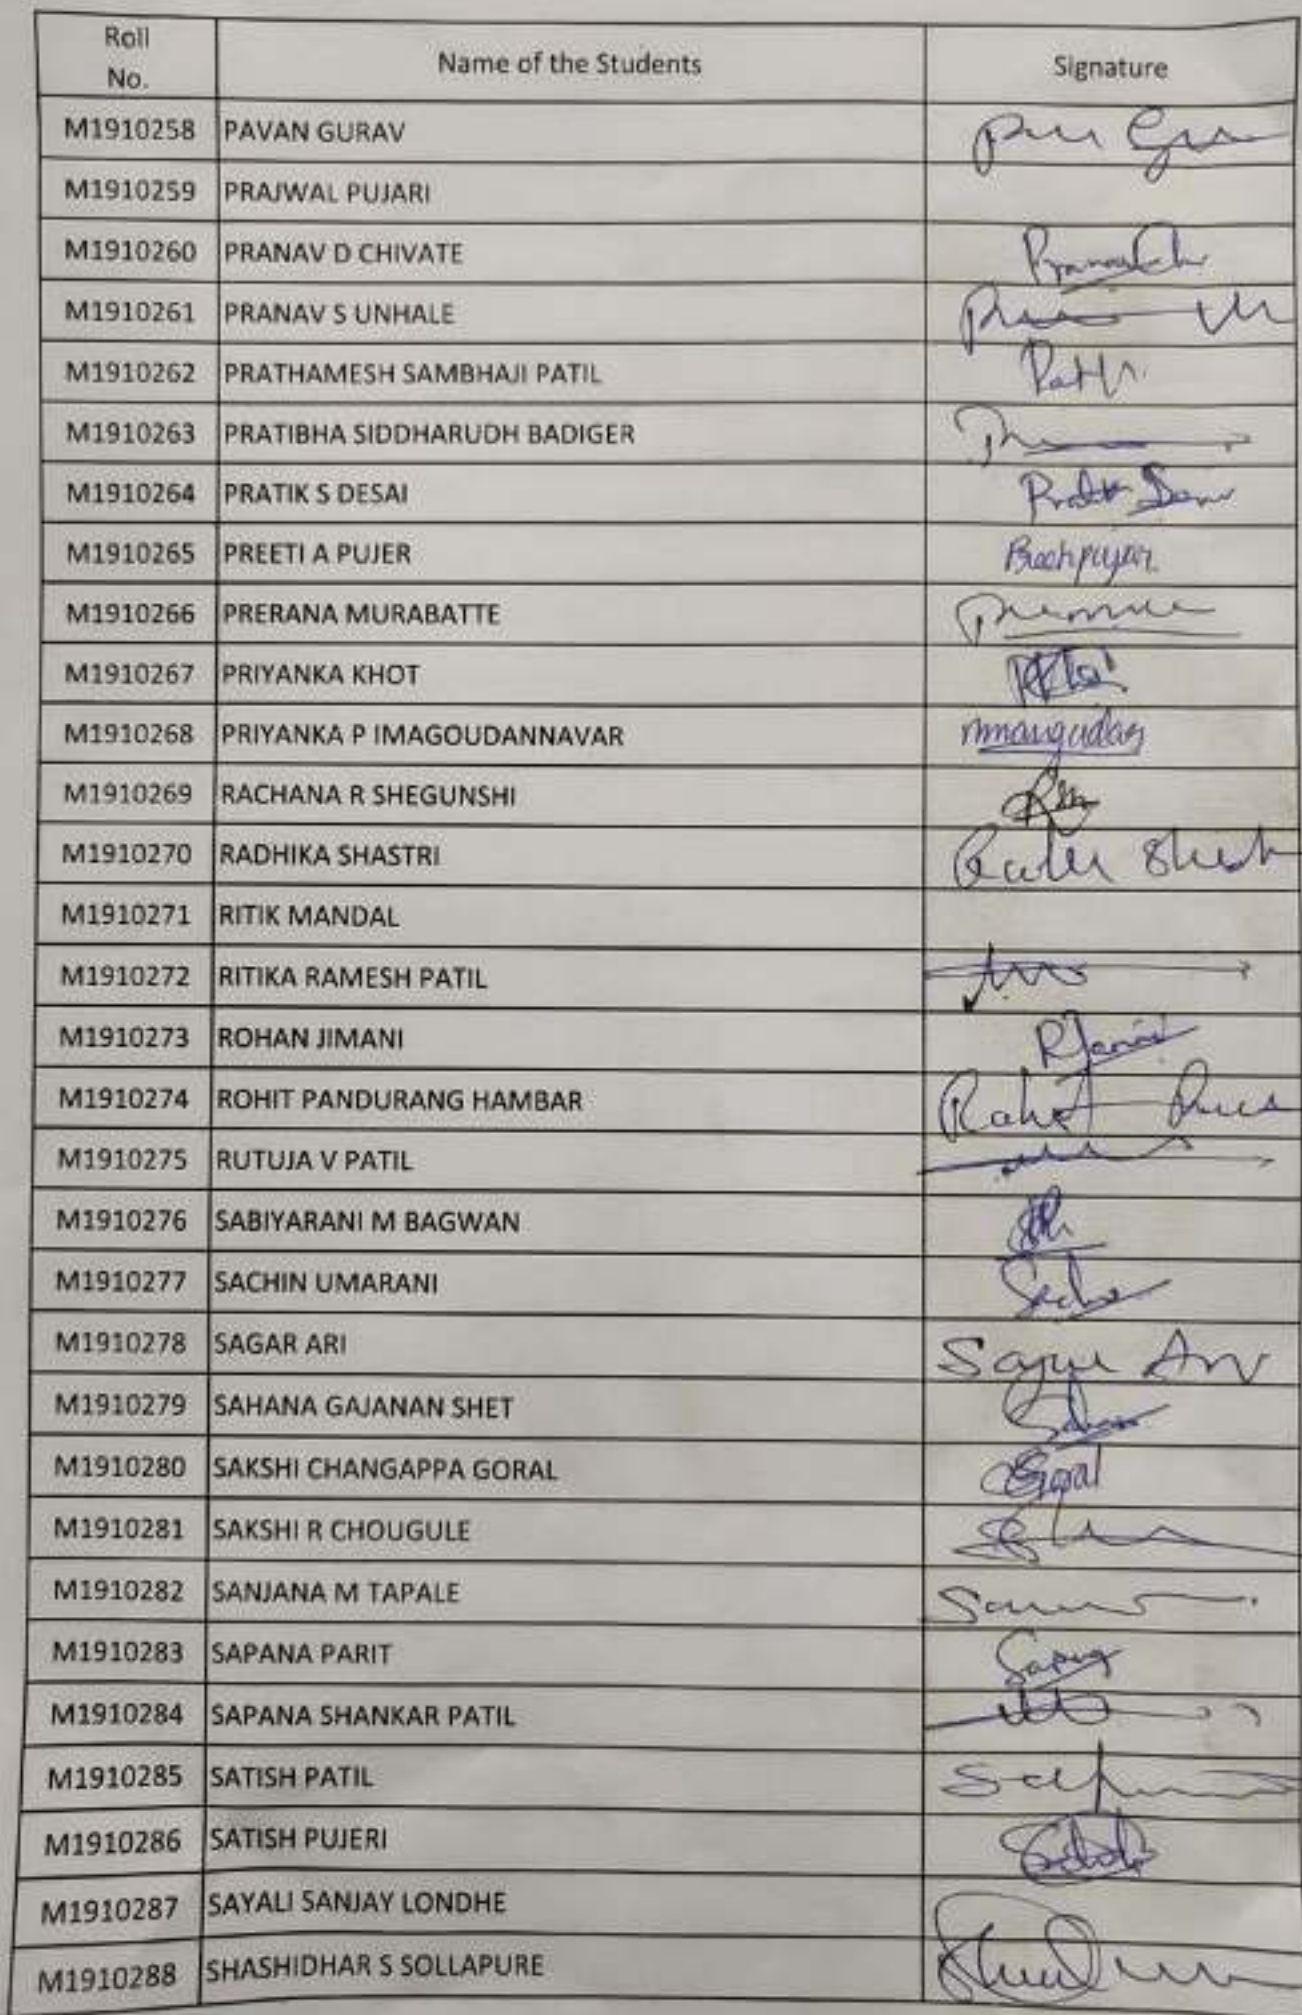 Roll No. Name of the Students Signature
M1910258 PAVAN GURAV
M1910259 PRAJWAL PUJARI
M1910260 PRANAV D CHIVATE
M1910261 PRANAV S UNHALE
M1910262 PRATHAMESH SAMBHAJI PATIL
M1910263 PRATIBHA SIDDHARUDH BADIGER
M1910264 PRATIK S DESAI
M1910265 PREETI A PUJER
M1910266 PRERANA MURABATTE
M1910267 PRIYANKA KHOT
M1910268 PRIYANKA P IMAGOUDANNAVAR
M1910269 RACHANA R SHEGUNSHI
M1910270 RADHIKA SHASTRI
M1910271 RITIK MANDAL
M1910272 RITIKA RAMESH PATIL
M1910273 ROHAN JIMANI
M1910274 ROHIT PANDURANG HAMBAR
M1910275 RUTUJA V PATIL
M1910276 SABIYARANI M BAGWAN
M1910277 SACHIN UMARANI
M1910278 SAGAR ARI
M1910279 SAHANA GAJANAN SHET
M1910280 SAKSHI CHANGAPPA GORAL
M1910281 SAKSHI R CHOUGULE
M1910282 SANJANA M TAPALE
M1910283 SAPANA PARIT
M1910284 SAPANA SHANKAR PATIL
M1910285 SATISH PATIL
M1910286 SATISH PUJERI
M1910287 SAYALI SANJAY LONDHE
M1910288 SHASHIDHAR S SOLLAPURE